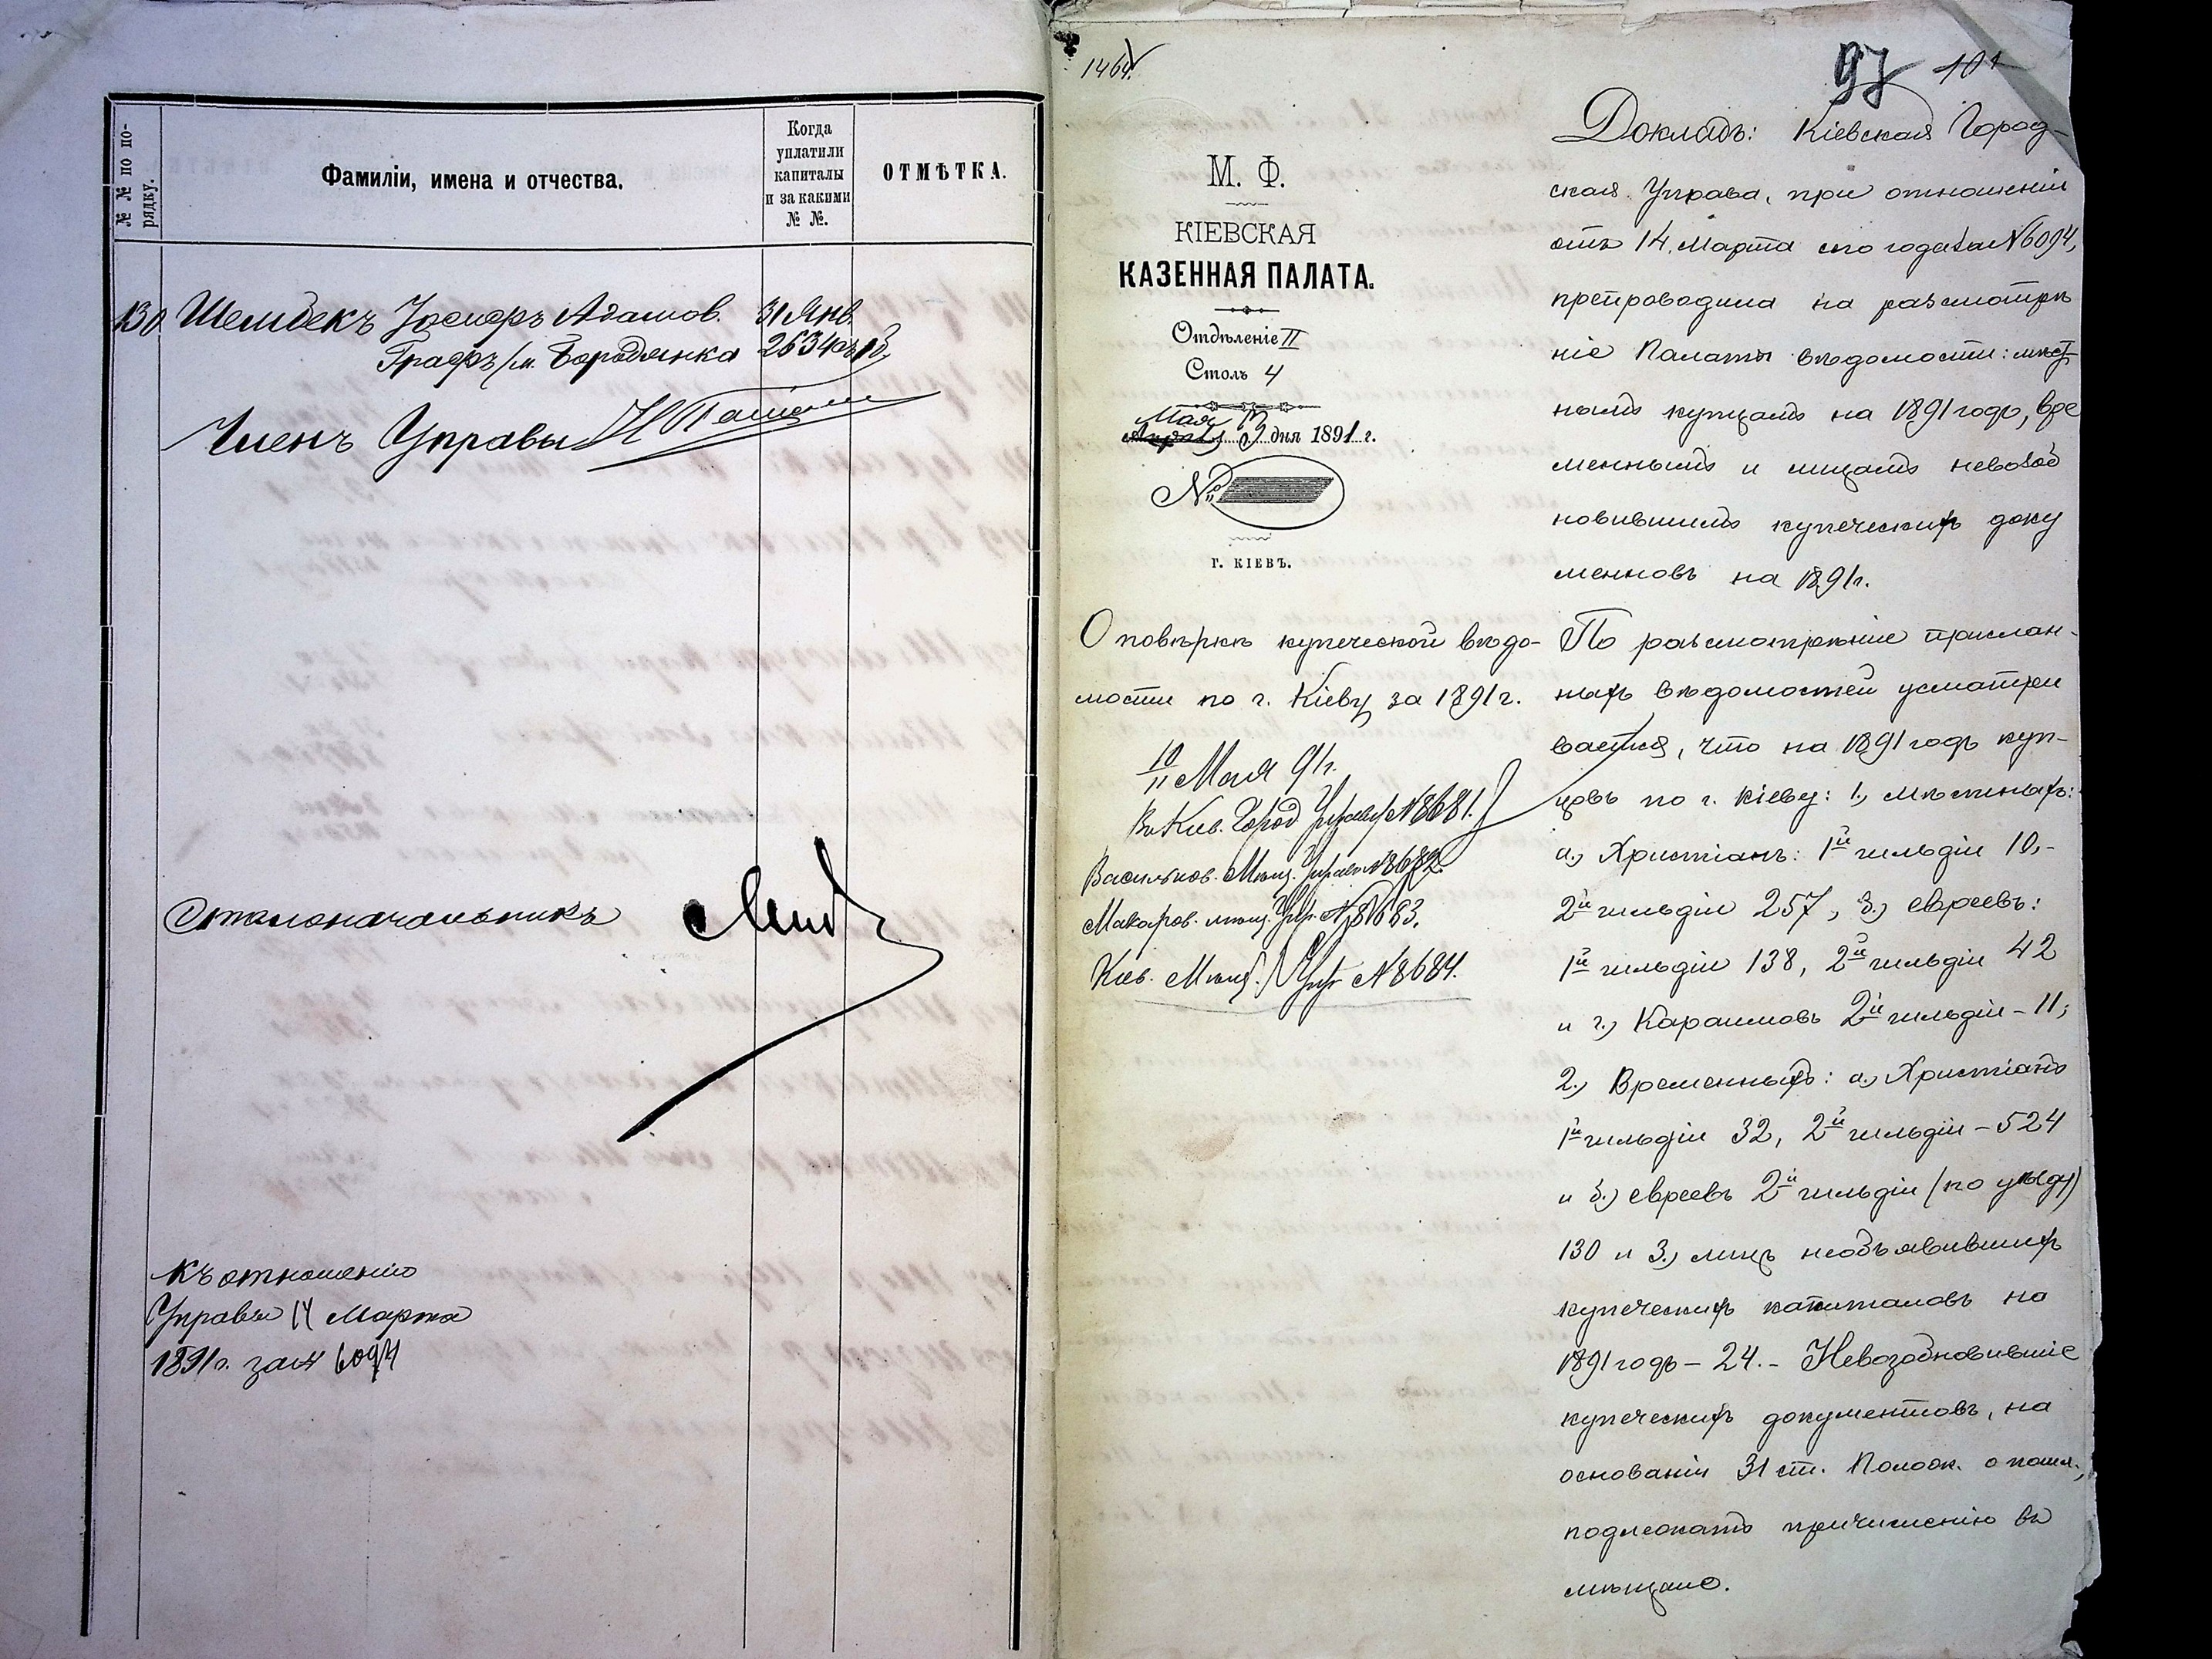 № № по по-
рядку.
Фамиліи, имена и отчества.
Когда
уплатили
капиталы
и за какими
№ №.
ОТМѢТКА.
130 Шембекъ Іосифъ Адамов. 31 Янв.
Графъ (м. Бородянка 2634
Членъ Управы
Столоначальникъ
Къ отношенію
Управы 14 Марта
1891г. за № 6094
1464
97 101
М. Ф.
КІЕВСКАЯ
КАЗЕННАЯ ПАЛАТА.
Отдѣленіе II
Столъ 4
Мая
дня 1891 г.
№
г. КІЕВЪ.
О повѣркѣ купеческой вѣдо-
мости по г. Кіеву за 1891 г.
10
11 Мая 91г.
Въ Кіев. Город. Управу № 8681.
Васильков. Мѣщ. Управ № 8682.
Макаров. мѣщ. Упр. № 8683.
Кіев. Мѣщ. Упр. № 8684.
Докладъ: Кіевская Город-
ская Управа, при отношеніи
отъ 14 Марта сего года за № 6094,
препроводила на разсмотрѣ
ніе Палаты вѣдомости: мѣст
нымъ купцамъ на 1891 годъ, вре
меннымъ и лицамъ невозоб
новившимъ купеческихъ доку
ментовъ на 1891г.
По разсмотрѣніи прислан-
ныхъ вѣдомостей усматри
вается, что на 1891 годъ куп-
цовъ по г. Кіеву: 1., мѣстныхъ:
а.) Христіанъ: 1й гильдіи 10,-
2й гильдіи 257, б.) евреевъ:
1й гильдіи 138, 2й гильдіи 42
и г.) Караимовъ 2й гильдіи - 11;
2.) Временныхъ: а.) Христіанъ
1й гильдіи 32, 2й гильдіи - 524
и б.) евреевъ 2й гильдіи (по уѣзду)
130 и 3.) лицъ необъявившихъ
купеческихъ капиталовъ на
1891 годъ - 24. - Невозобновившіе
купеческихъ документовъ, на
основаніи 31 ст. Полож. о пошл.,
подлежатъ причисленію въ
мѣщане.